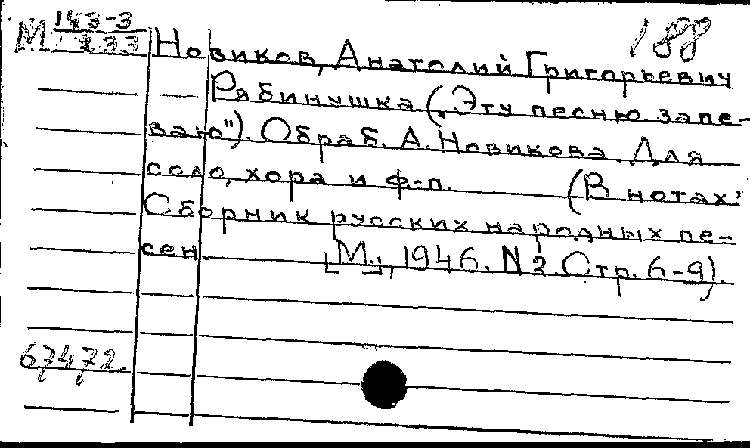 М 143-3
233
188
Новиков, Анатолий Григорьевич
Рябинушка („Эту песню запе-
ваю"). Обраб. А. Новикова. Для
соло, хора и ф-п. (В нотах:
Сборник русских народных пе-
сен [М.], 1946. N 2. Стр. 6-9).
67472